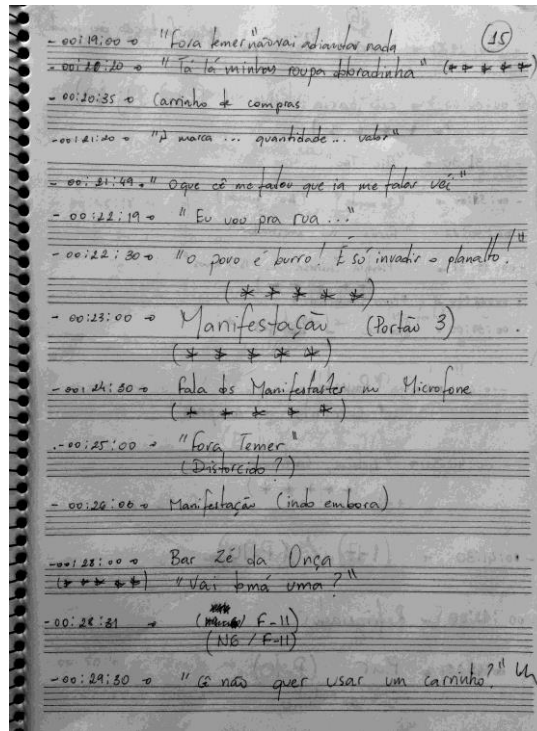 15
- 00:19:00 → "Fora temer" não vai adiantar nada
- 00:20:20 → "Tá lá minhas roupa dobradinha" (* * * * *)
- 00:20:35 → Carrinho de compras
- 00:21:20 → "A marca ... quantidade ... valor"
- 00:21:49 → "O que cê me falou que ia me falar vei"
- 00:22:19 → "Eu vou pra rua ..."
- 00:22:30 → "O povo é burro! É só invadir o planalto!"
(* * * * *)
- 00:23:00 → Manifestação (Portão 3)
(* * * * *)
- 00:24:30 → Fala dos Manifestastes no Microfone
(* * * * *)
- 00:25:00 → "Fora Temer"
(Distorcido?)
- 00:26:00 → Manifestação (indo embora)
- 00:28:00 → Bar Zé da Onça
(* * * * *) "Vai tomá uma?"
- 00:28:31 → ( / F-11)
(NG / F-11)
- 00:29:30 → "Cê não quer usar um carrinho?"